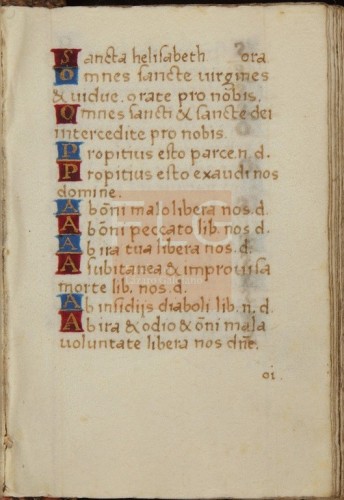 Sancta helisabeth ora
Omnes sancte virgines
& vidue. orate pro nobis.
Omnes sancti & sancte dei
intercedite pro nobis.
Propitius esto parce. n. d.
Propitius esto exaudi nos
domine.
A bōni malo libera nos. d.
A bōni peccato lib. nos. d.
Ab ira tua libera nos. d.
A subitanea & improvisa
morte lib. nos. d.
Ab insidijs diaboli lib. n. d.
Ab ira & odio & ōni mala
voluntate libera nos dn̄e.